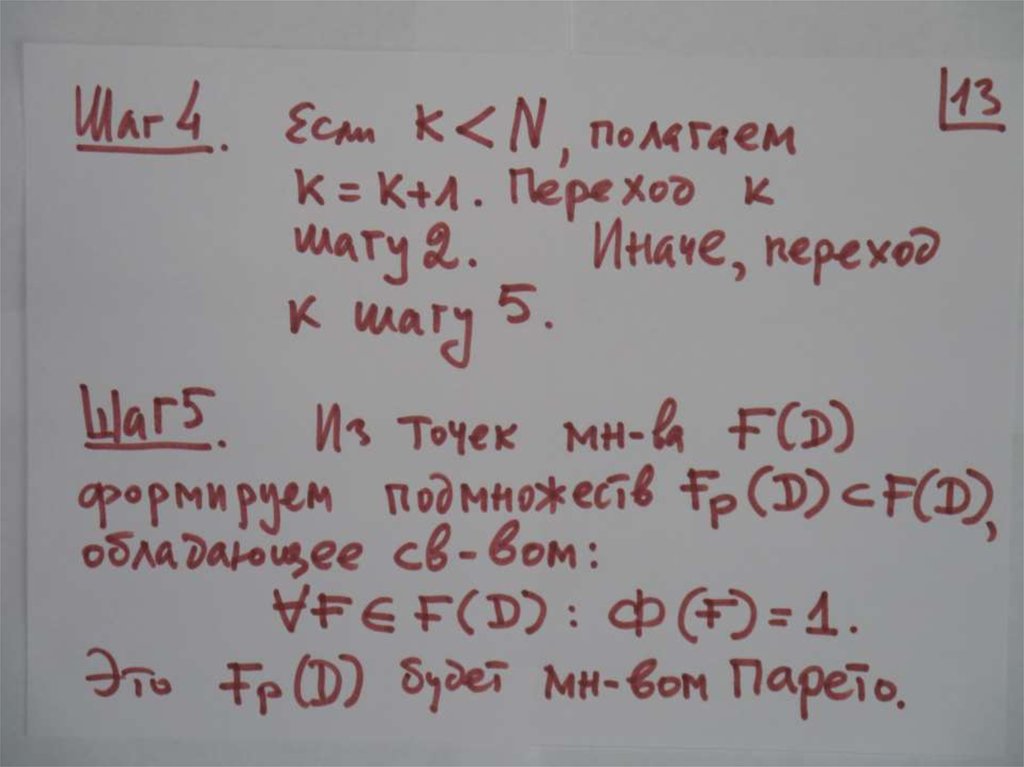 Шаг 4. Если K < N, полагаем 13
K = K+1. Переход к
шагу 2. Иначе, переход
к шагу 5.
Шаг 5. Из точек мн-ва F(D)
формируем подмножеств Fp(D) ⊂ F(D),
обладающее св-вом:
∀F ∈ F(D) : Ф(F) = 1.
Это Fp(D) будет мн-вом Парето.